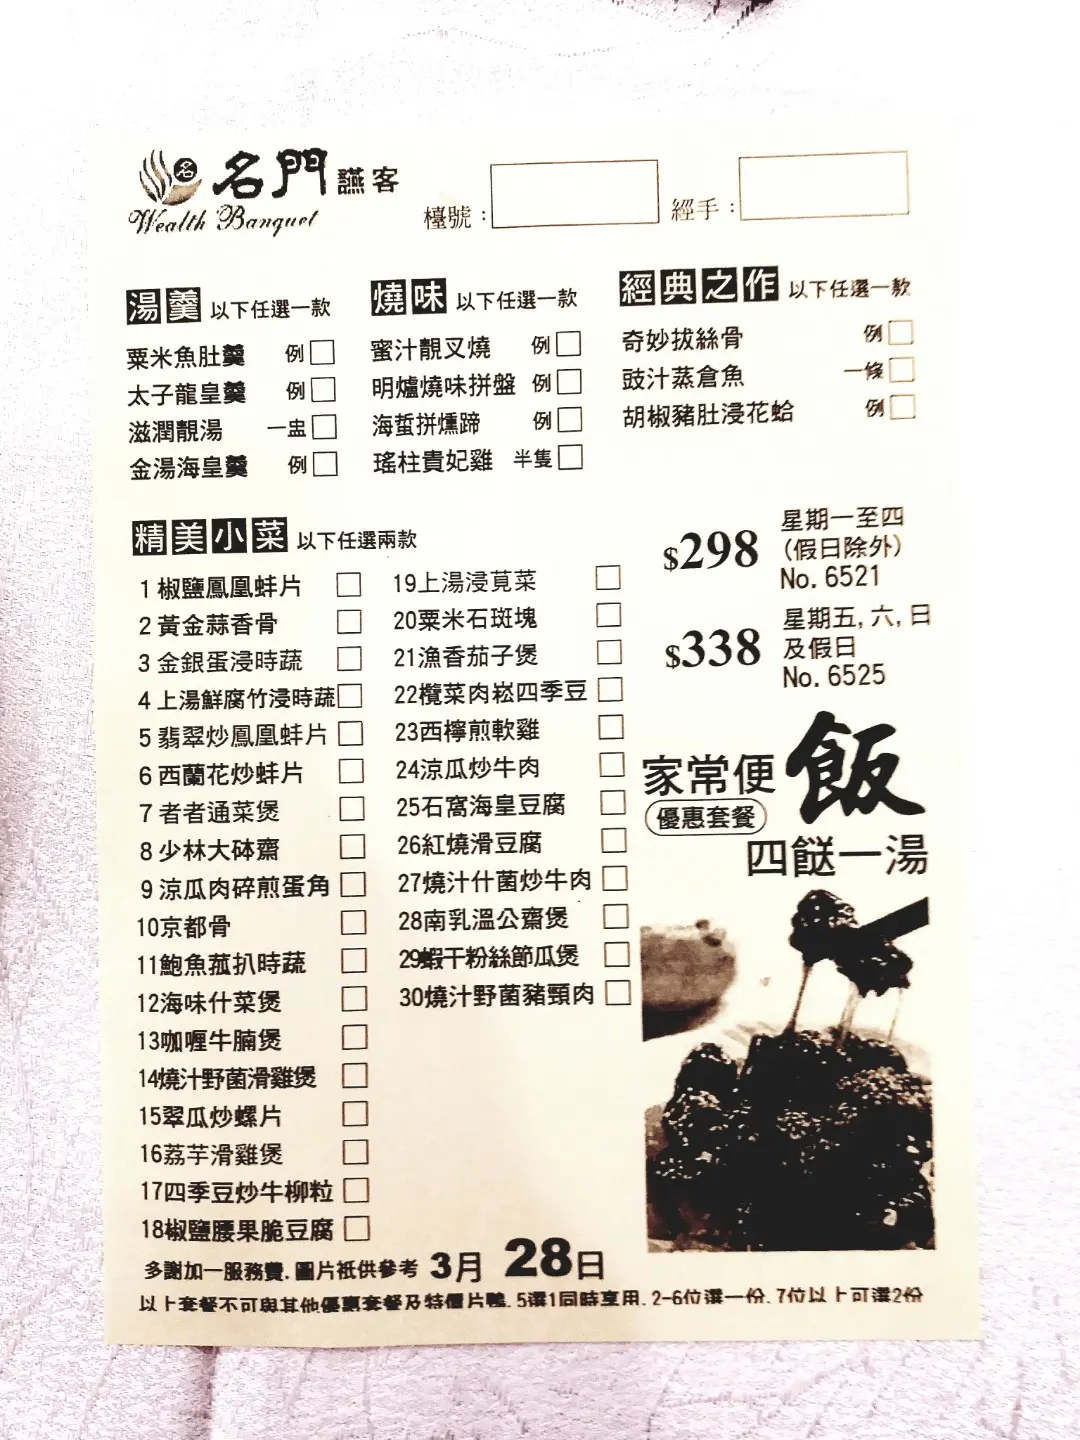 名 名門讌客
Wealth Banquet
檯號：
經手：
湯羹 以下任選一款
粟米魚肚羹 例
太子龍皇羹 例
滋潤靚湯 一盅
金湯海皇羹 例
燒味 以下任選一款
蜜汁靚叉燒 例
明爐燒味拼盤 例
海蜇拼燻蹄 例
瑤柱貴妃雞 半隻
經典之作 以下任選一款
奇妙拔絲骨 例
豉汁蒸倉魚 一條
胡椒豬肚浸花蛤 例
精美小菜 以下任選兩款
1 椒鹽鳳凰蚌片
2 黃金蒜香骨
3 金銀蛋浸時蔬
4 上湯鮮腐竹浸時蔬
5 翡翠炒鳳凰蚌片
6 西蘭花炒蚌片
7 者者通菜煲
8 少林大砵齋
9 涼瓜肉碎煎蛋角
10京都骨
11鮑魚菰扒時蔬
12海味什菜煲
13咖喱牛腩煲
14燒汁野菌滑雞煲
15翠瓜炒螺片
16荔芋滑雞煲
17四季豆炒牛柳粒
18椒鹽腰果脆豆腐
19上湯浸莧菜
20粟米石斑塊
21漁香茄子煲
22欖菜肉崧四季豆
23西檸煎軟雞
24涼瓜炒牛肉
25石窩海皇豆腐
26紅燒滑豆腐
27燒汁什菌炒牛肉
28南乳溫公齋煲
29蝦干粉絲節瓜煲
30燒汁野菌豬頸肉
$298 星期一至四
(假日除外)
No. 6521
$338 星期五, 六, 日
及假日
No. 6525
家常便飯
優惠套餐
四餸一湯
多謝加一服務費. 圖片衹供參考 3月 28日
以上套餐不可與其他優惠套餐及特價片鴨. 5選1同時享用. 2-6位選一份. 7位以上可選2份